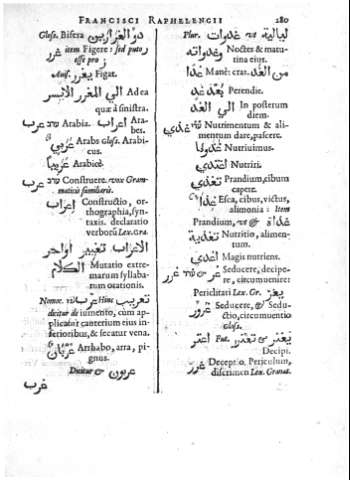 FRANCISCI RAPHELENGII 280
Glos. Bifera ذو الغرازين
item Figere: sed puto
esse pro غرز
Avis. يغرز Figat.
الي المغرز الايسر Ad ea
quæ à sinistra.
Arabia. اعراب Ara-
bes.
عربي Arabs Glos. Arabi-
cus.
عربيا Arabicè.
عرب Construere. vox Gram-
maticis familiaris.
اعراب Constructio, or-
thographia, syn-
taxis. declaratio
verborũ Lex. gra.
الاعراب تغيير اواخر
الكلام Mutatio extre-
marum syllaba-
rum orationis.
Nomen. تعريب Hinc عرب
dicitur de iumento, cùm ap-
plicatur canterium eius in-
ferioribus, & secatur vena.
عربان Arrhabo, arra, pi-
gnus.
Dicitur & عربون
غرب
Plur. غدوات
Noctes & matu-
tina eius.
من الغد Manè: cras. غدا
بعد غد Perendie.
الي الغد In posterum
diem.
غذي Nutrimentum & ali-
mentum dare, pascere.
Nutriuimus.
Nutriri.
تغدي Prandium, cibum
capere.
غدا Esca, cibus, victus,
alimonia: Item
Prandium, ve & غداة
تغدية Nutritio, alimen-
tum.
اغدي Magis nutriens.
غرر Seducere, decipe-
re, circumuenire:
Periclitari Lex. Gr.
غرر Seducere, & Sedu-
ctio, circumuentio
Glos.
اغتر Fut. يغتر & تغتر
Decipi.
غرر Deceptio, Periculum,
discrimen Lex. Granat.